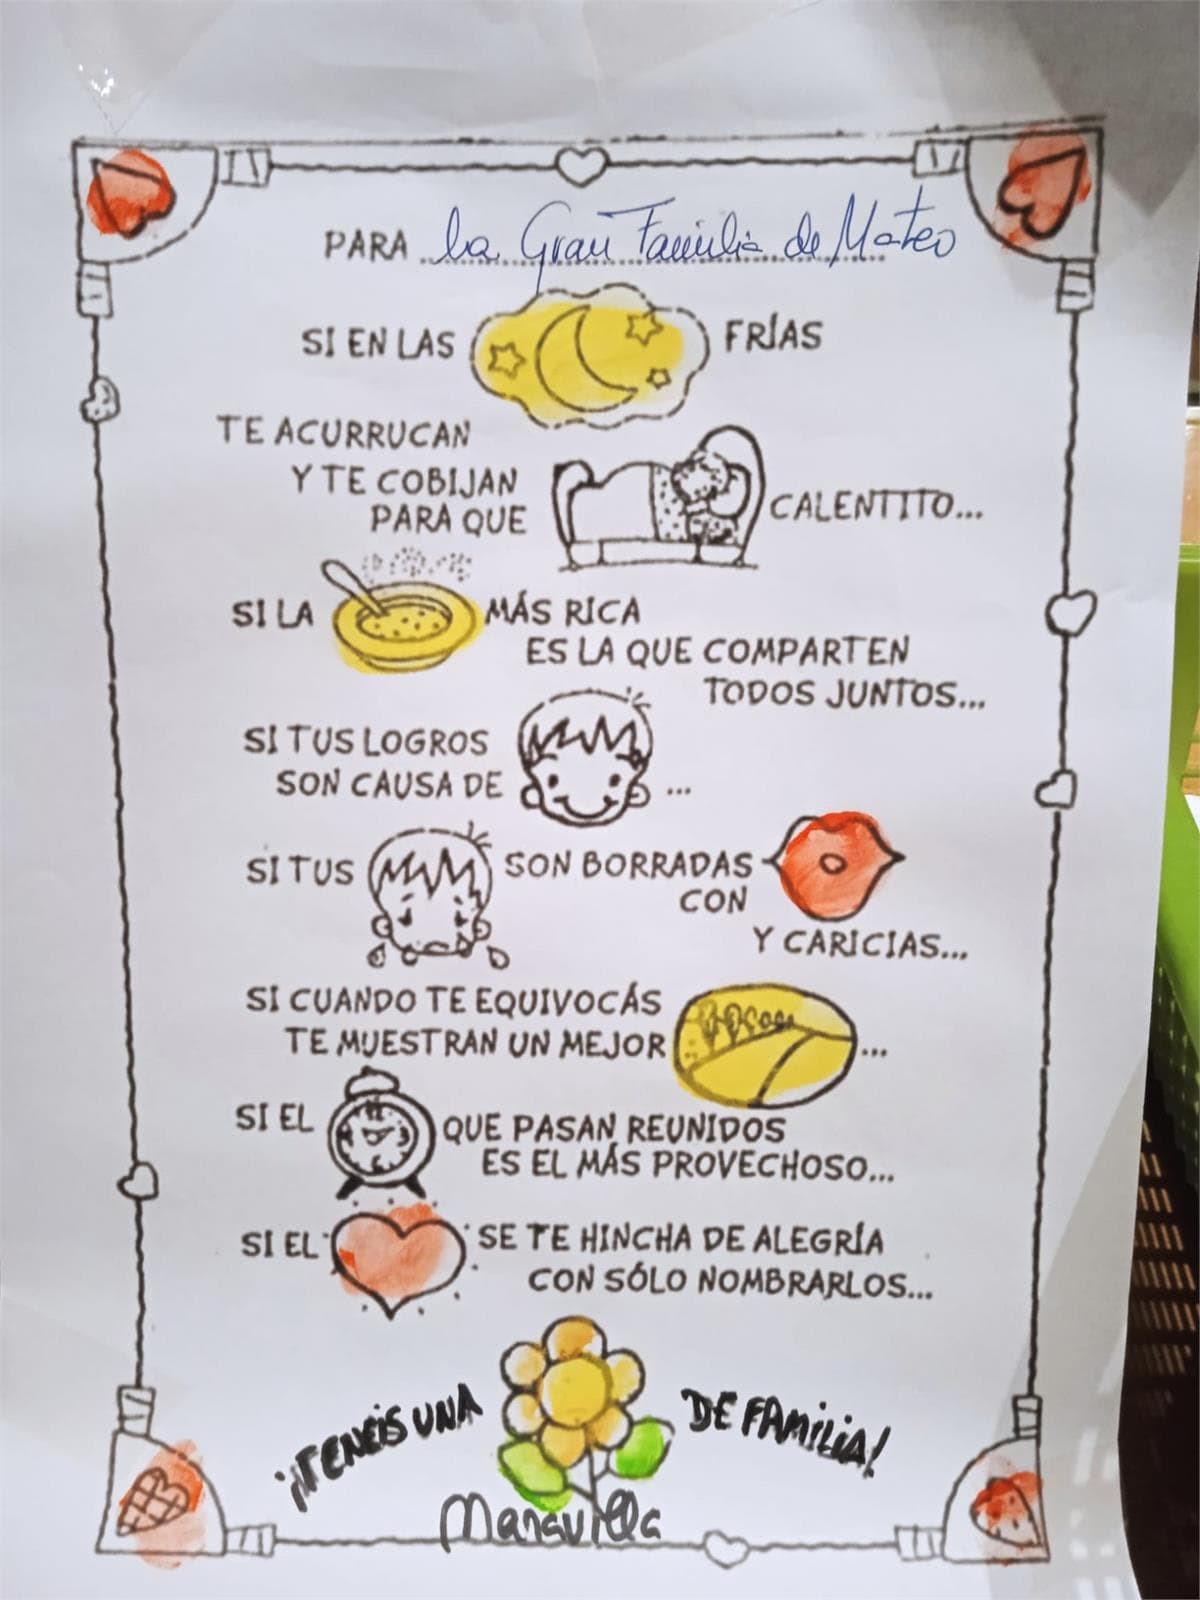 PARA la Gran Familia de Mateo
SI EN LAS FRÍAS
TE ACURRUCAN
Y TE COBIJAN
PARA QUE CALENTITO...
SI LA MÁS RICA
ES LA QUE COMPARTEN
TODOS JUNTOS...
SI TUS LOGROS
SON CAUSA DE ...
SI TUS SON BORRADAS
CON
Y CARICIAS...
SI CUANDO TE EQUIVOCÁS
TE MUESTRAN UN MEJOR ...
SI EL QUE PASAN REUNIDOS
ES EL MÁS PROVECHOSO...
SI EL SE TE HINCHA DE ALEGRÍA
CON SÓLO NOMBRARLOS...
¡¡TENEIS UNA DE FAMILIA!
Maravilla